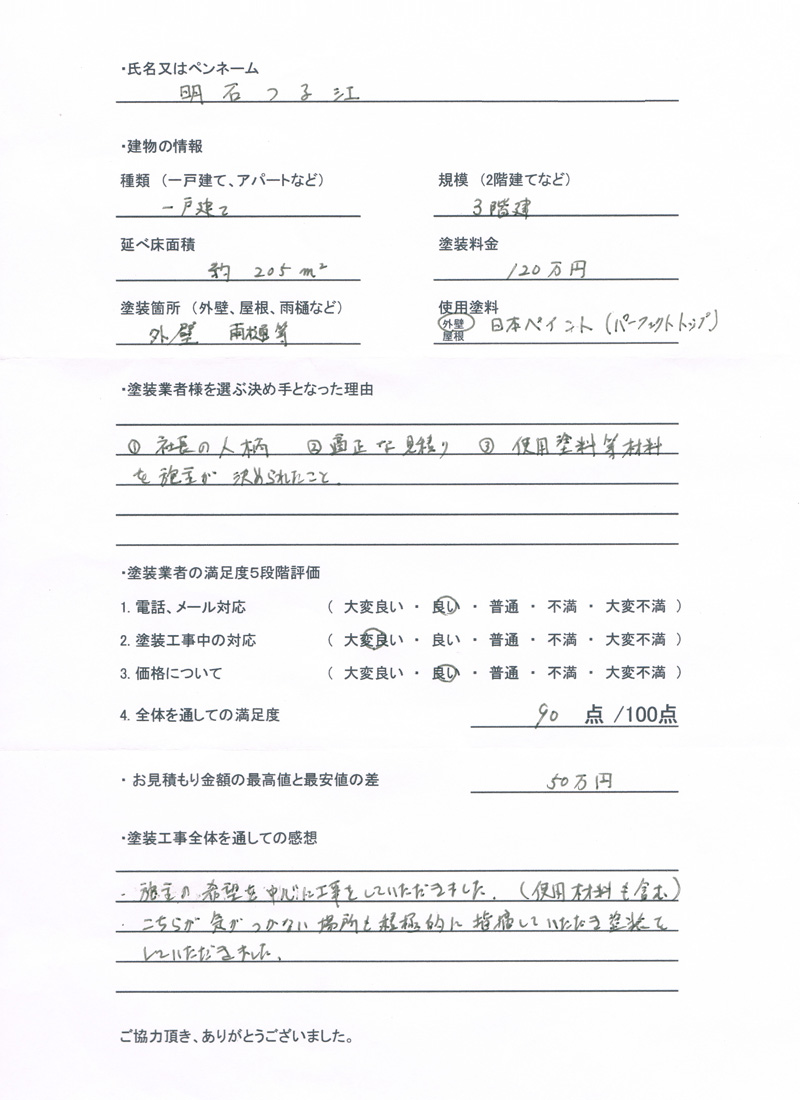 ・氏名又はペンネーム
明石つる江
・建物の情報
種類（一戸建て、アパートなど） 規模（2階建てなど）
一戸建て 3階建
延べ床面積 塗装料金
約 205m² 120万円
塗装箇所（外壁、屋根、雨樋など） 使用塗料
外壁 雨樋等 外壁 屋根 日本ペイント(パーフェクトトップ)
・塗装業者様を選ぶ決め手となった理由
① 社長の人柄 ② 適正な見積り ③ 使用塗料等材料
を施主が決められたこと.
・塗装業者の満足度5段階評価
1. 電話、メール対応 （ 大変良い ・ 良い ・ 普通 ・ 不満 ・ 大変不満 ）
2. 塗装工事中の対応 （ 大変良い ・ 良い ・ 普通 ・ 不満 ・ 大変不満 ）
3. 価格について （ 大変良い ・ 良い ・ 普通 ・ 不満 ・ 大変不満 ）
4. 全体を通しての満足度 90 点 /100点
・お見積もり金額の最高値と最安値の差 50万円
・塗装工事全体を通しての感想
・施主の希望を中心に工事をしていただきました.（使用材料も含む）
・こちらが気がつかない場所も積極的に指摘していただき塗装を
していただきました.
ご協力頂き、ありがとうございました。